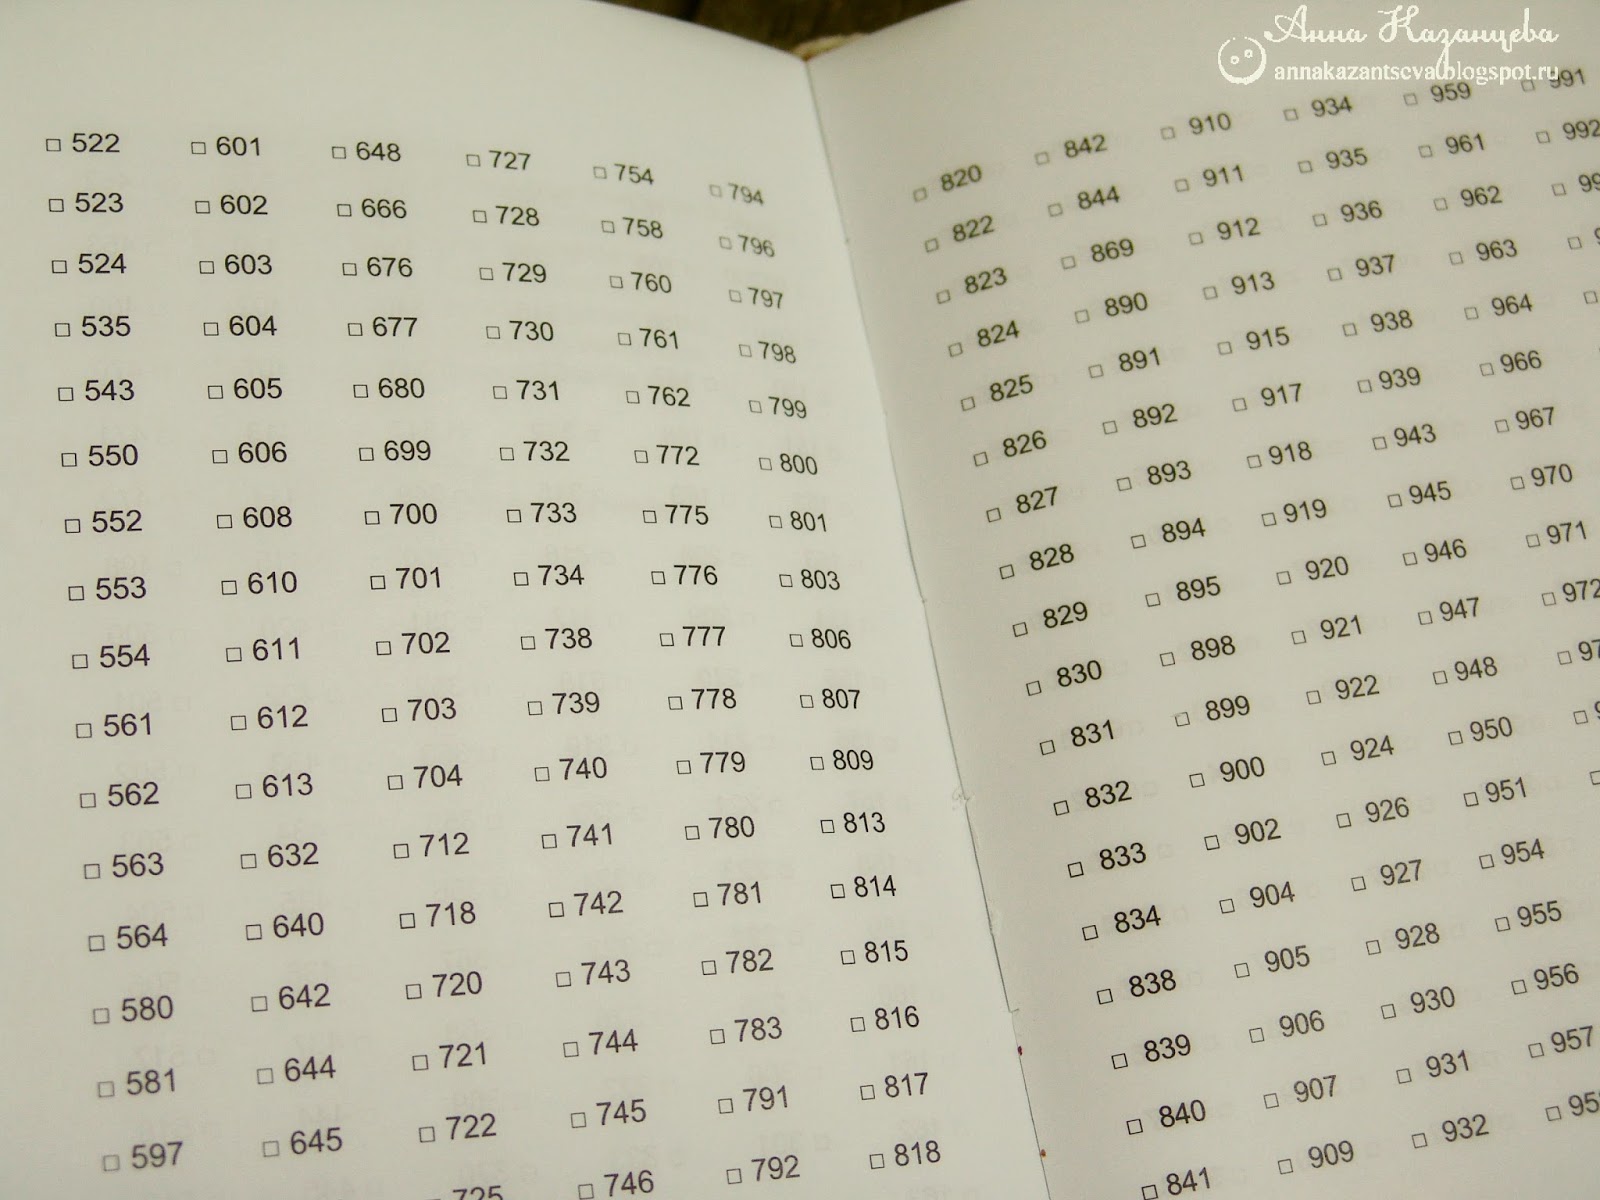 Анна Казанцева
annakazantseva.blogspot.ru
□ 522 □ 601 □ 648 □ 727 □ 754 □ 794
□ 523 □ 602 □ 666 □ 728 □ 758 □ 796
□ 524 □ 603 □ 676 □ 729 □ 760 □ 797
□ 535 □ 604 □ 677 □ 730 □ 761 □ 798
□ 543 □ 605 □ 680 □ 731 □ 762 □ 799
□ 550 □ 606 □ 699 □ 732 □ 772 □ 800
□ 552 □ 608 □ 700 □ 733 □ 775 □ 801
□ 553 □ 610 □ 701 □ 734 □ 776 □ 803
□ 554 □ 611 □ 702 □ 738 □ 777 □ 806
□ 561 □ 612 □ 703 □ 739 □ 778 □ 807
□ 562 □ 613 □ 704 □ 740 □ 779 □ 809
□ 563 □ 632 □ 712 □ 741 □ 780 □ 813
□ 564 □ 640 □ 718 □ 742 □ 781 □ 814
□ 580 □ 642 □ 720 □ 743 □ 782 □ 815
□ 581 □ 644 □ 721 □ 744 □ 783 □ 816
□ 597 □ 645 □ 722 □ 745 □ 791 □ 817
□ 725 □ 746 □ 792 □ 818
□ 820 □ 842 □ 910 □ 934 □ 959 □ 991
□ 822 □ 844 □ 911 □ 935 □ 961 □ 992
□ 823 □ 869 □ 912 □ 936 □ 962
□ 824 □ 890 □ 913 □ 937 □ 963
□ 825 □ 891 □ 915 □ 938 □ 964
□ 826 □ 892 □ 917 □ 939 □ 966
□ 827 □ 893 □ 918 □ 943 □ 967
□ 828 □ 894 □ 919 □ 945 □ 970
□ 829 □ 895 □ 920 □ 946 □ 971
□ 830 □ 898 □ 921 □ 947 □ 972
□ 831 □ 899 □ 922 □ 948
□ 832 □ 900 □ 924 □ 950
□ 833 □ 902 □ 926 □ 951
□ 834 □ 904 □ 927 □ 954
□ 838 □ 905 □ 928 □ 955
□ 839 □ 906 □ 930 □ 956
□ 840 □ 907 □ 931 □ 957
□ 841 □ 909 □ 932